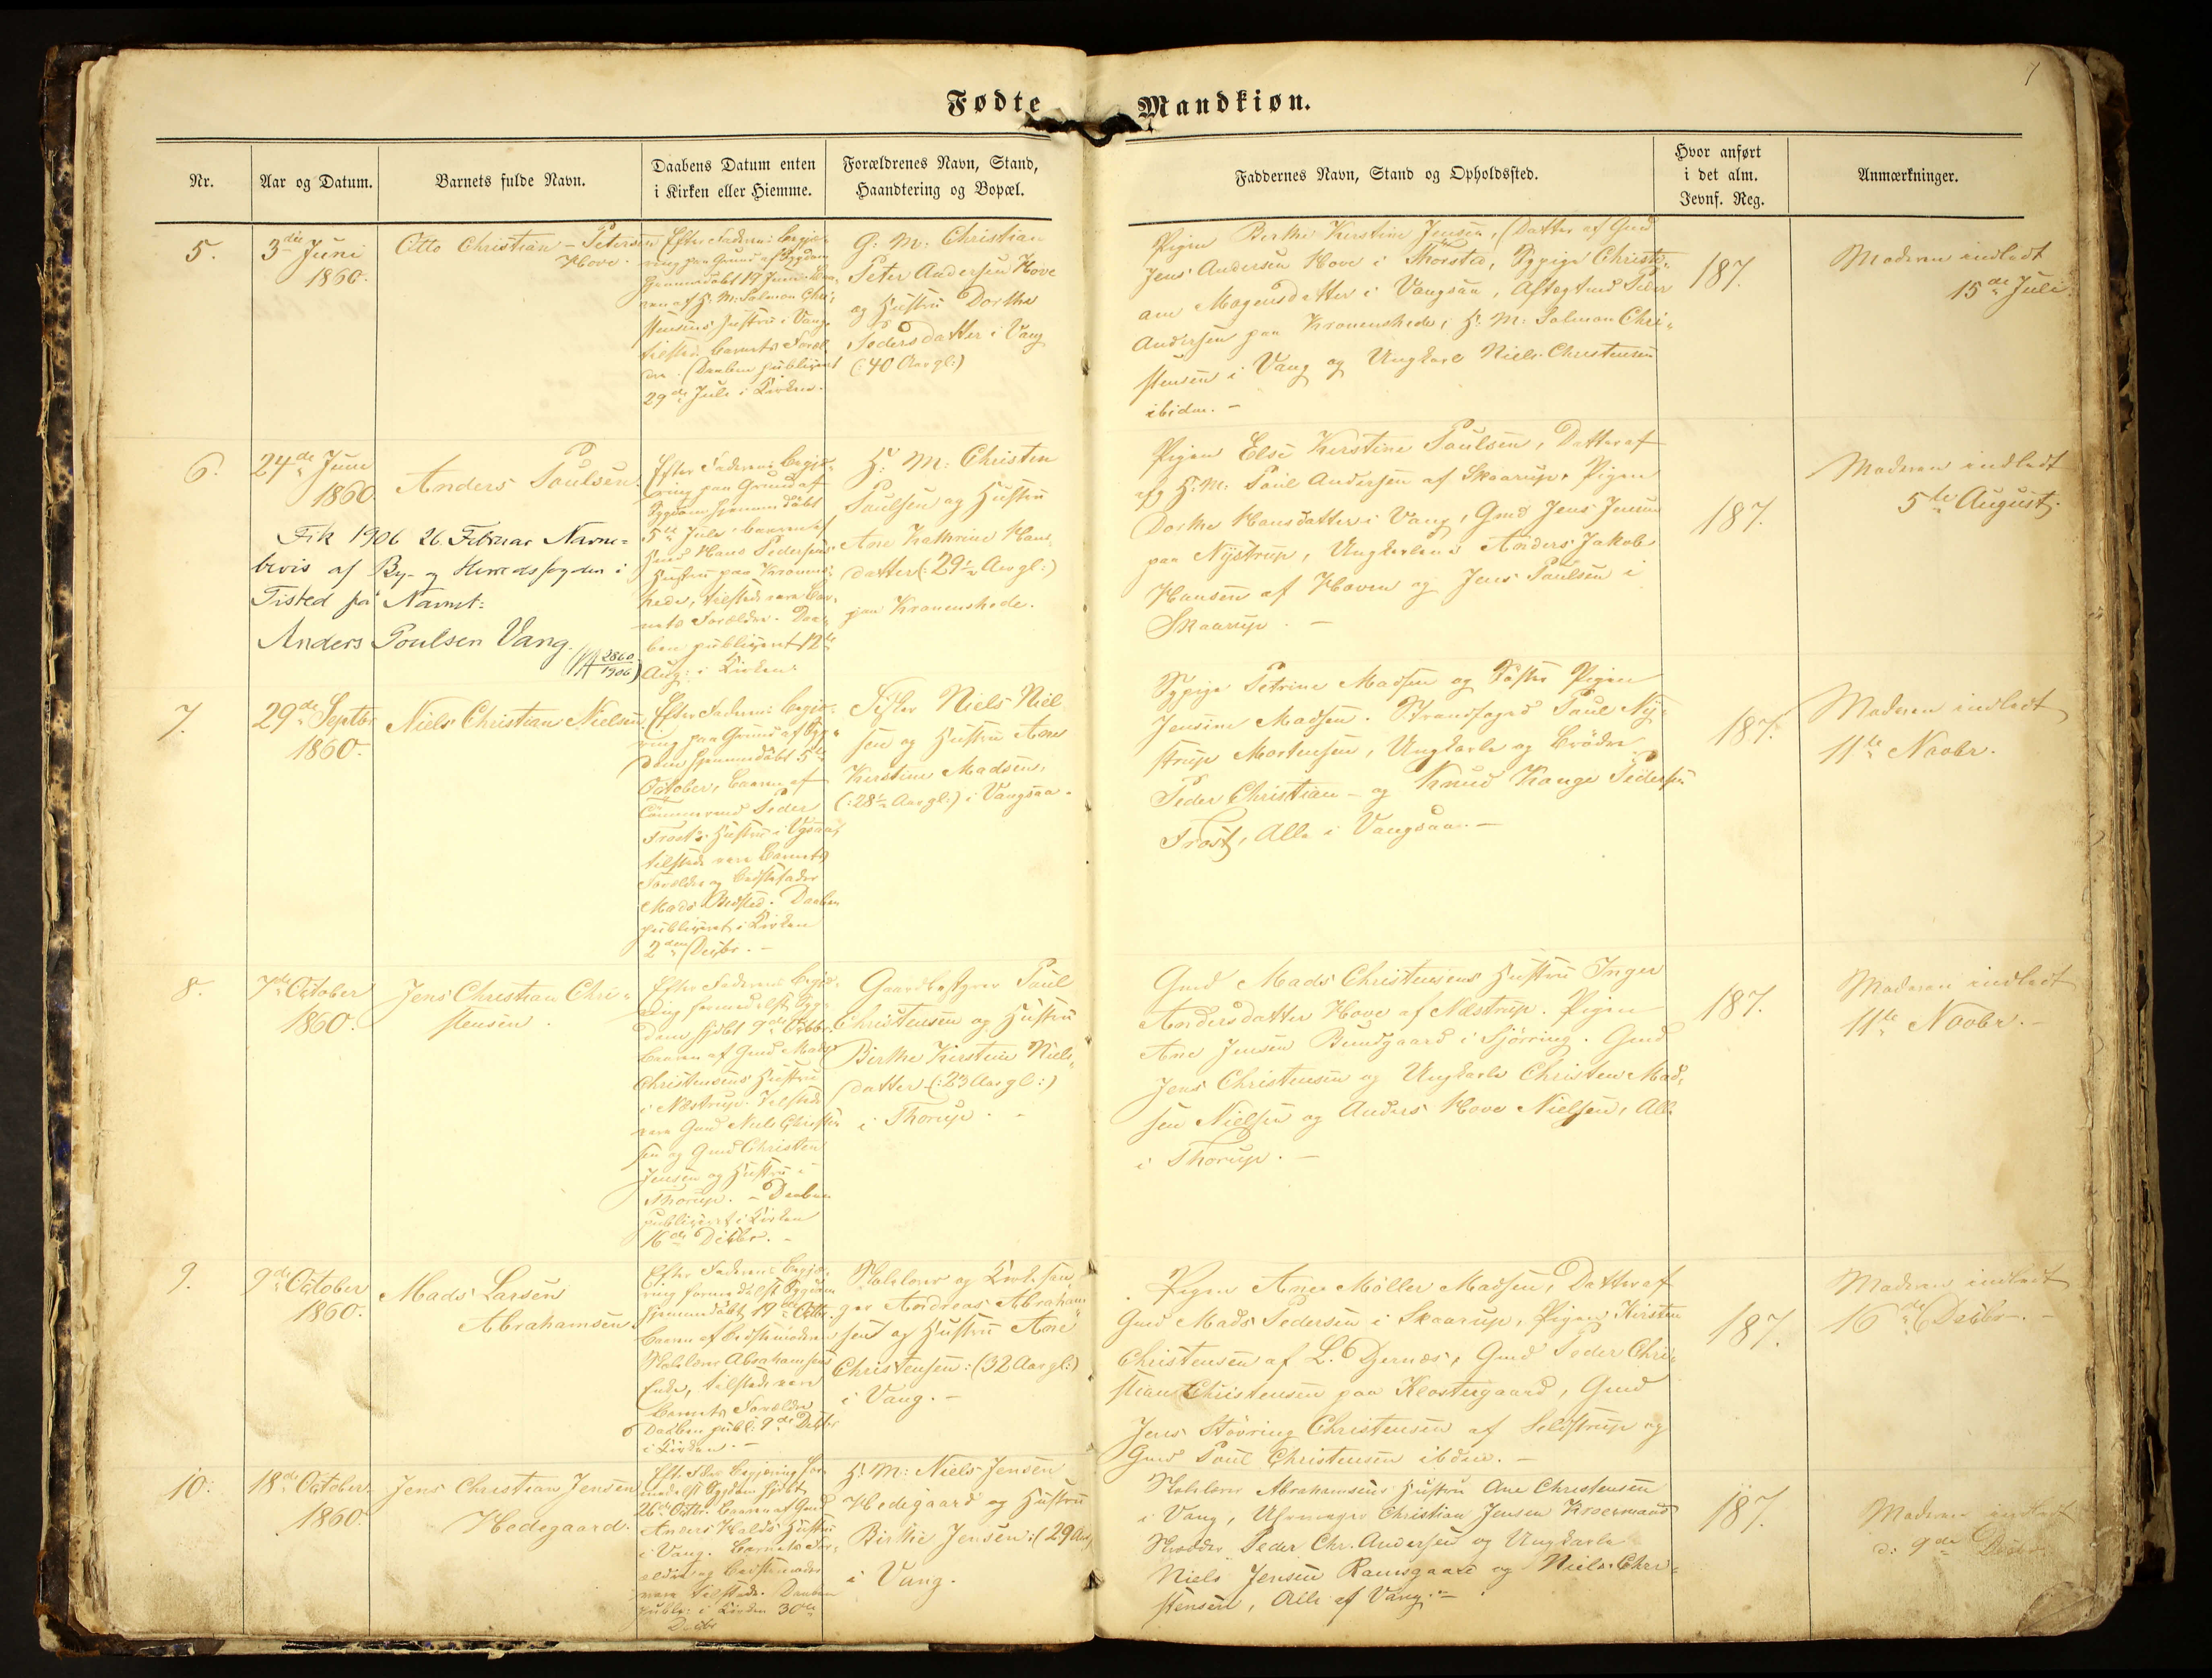 7
Fødte Mandkiøn.
Nr.
Aar og Datum.
Barnets fulde Navn.
Daabens Datum enten
i Kirken eller Hiemme.
Forældrenes Navn, Stand,
Haandtering og Bopæl.
Faddernes Navn, Stand og Opholdssted.
Hvor anført
i det alm.
Jevnf. Reg.
Anmærkninger.
5.
3die Juni
1860.
Otto Christian - Petersen
Hove.
Efter Faderens Begjæ-
ring paa Grund af Sygdom
hjemmedøbt 17 Juni
af H. M: Salmon Chri-
stensens Hustru i Vang
tilstede Barnets Foræl
dre. (Daaben publiceret
29de Juli i Kirken.
G: M: Christian
Peter Andersen Hove
og Hustru Dorthe
Pedersdatter i Vang
(:40 Aar gl:)
Pigen Birthe Kirstine Jensen, (Datter af Gmd
Jens Andersen Hove i Thorsted, Sypige Christi-
ane Mogensdatter i Vangsaa, Aftægtmd Peder
Andersen paa Kronenshede, H: M: Salmon Chri-
stensen i Vang og Ungkarl Niels Christensen
ibidm. -
187.
Moderen indledt
15de Juli.
6.
24de Juni
1860
Anders Poulsen.
Fik 1906 26. Februar Navne-
bevis af By- og Herredsfogden i
Tisted på Navnet:
Anders Poulsen Vang.
2860
1906
Efter Faderens Begjæ-
ring paa Grund af
Sygdom hjemmedøbt
5te Juli baaren af
Gmd Hans Pedersens
Hustru paa Kronens-
hede, tilstede vare Bar-
nets Forældre. Daa-
ben publiceret 12te
Aug: i Kirken.
H: M: Christen
Poulsen og Hustru
Ane Kathrine Hans-
datter (:29½ Aar gl:)
paa Kronenshede.
Pigen Else Kirstine Poulsen, Datter af
afg H: M: Poul Andersen af Skaarup, Pigen
Dorthe Hansdatter i Vang, Gmd Jens Jensen
paa Nystrup, Ungkarlene Anders Jakob
Hansen af Hoven og Jens Poulsen i
Skaarup. -
187.
Moderen indledt
5te August.
7.
29de Septbr
1860.
Niels Christian Nielsen.
Efter Faderens Begjæ-
ring paa Grund af Syg-
dom hjemmedøbt 5te
October, baaren af
Tømmermd Peder
Frost's Hustru i Vgsaa,
tilstede vare Barnets
Forældre og Bedstefader
Mads Bedsted. Daaben
publiceret i Kirken
2den Decbr. -
Fisker Niels Niel
sen og Hustru Ane
Kirstine Madsen,
(:28½ Aar gl:) i Vangsaa.
Sypige Petrine Madsen og Søster Pigen
Jensine Madsen. Strandfoged Poul Ny-
strup Mortensen, Ungkarle og Brødre
Peder Christian - og Knud Kange Pedersen
Frost, Alle i Vangsaa. -
187.
Moderen indledt
11te Novbr.
8.
7de October
1860.
Jens Christian Chri-
stensen.
Efter Faderens Begjæ-
ring formedelst Syg-
dom hjdøbt 9de Octbr.
baaren af Gmd Mads
Christensens Hustru
i Næstrup. Tilstede
vare Gmd Niels Christen
sen og Gmd Christen
Jensen og Hustru i
Thorup. - Daaben
publiceret i Kirken
16de Decbr. -
Gaardbestyrer Poul
Christensen og Hustru
Birthe Kirstine Niels-
datter (:23 Aar gl:)
i Thorup. -
Gmd Mads Christensens Hustru Inger
Andersdatter Hove af Næstrup. Pigen
Ane Jensen Bundgaard i Sjørring. Gmd
Jens Christensen og Ungkarle Christen Mad-
sen Nielsen og Anders Hove Nielsen, Alle
i Thorup. -
187.
Moderen indledt
11te Novbr. -
9.
9de October
1860.
Mads Larsen
Abrahamsen.
Efter Faderens Begjæ-
ring formedelst Sygdom
hjemmedøbt 17de Octbr.
baaren af Bedstemoderen
Skolelærer Abrahamsens
Enke, tilstede vare
Barnets Forældre
Daaben publ: 9de Decbr
i Kirken. -
Skolelærer og Kirkesan-
ger Andreas Abraham-
sen og Hustru Ane
Christensen: (32 Aar gl:)
i Vang. -
Pigen Ane Møller Madsen, Datter af
Gmd Mads Pedersen i Skaarup, Pigen Kirsten
Christensen af L. Djernæs, Gmd Peder Chri-
stian Christensen paa Klostergaard, Gmd
Jens Støvring Christensen af Seldstrup og
Gmd Poul Christensen ibdm. -
187.
Moderen indledt
16de Decbr. -
10.
18de October.
1860.
Jens Christian Jensen
Hedegaard.
Efter Fdrs Begjæring for-
medelst Sygdom hjdøbt
26de Octbr. baaren af Gmd
Anders Halds Hustru
i Vang. Barnets For-
ældre og Bedstemoder
vare tilstede. Daaben
publ: i Kirken 30te
Decbr
H: M: Niels Jensen
Hedegaard og Hustru
Birthe Jensen: (29 Aar
i Vang.
Skolelærer Abrahamsens Hustru Ane Christensen
i Vang, Christian Jensen
Peder Chr. Andersen og Ungkarle
Niels Jensen Ramsgaard og Niels Chri-
stensen, Alle af Vang. -
187.
Moderen indledt
d: 9de Decbr.